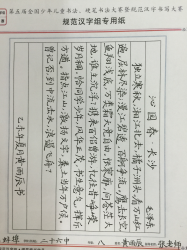 第五届全国少年儿童书法、硬笔书法大赛暨规范汉字书写大赛
规范汉字组专用纸
沁园春 长沙
毛泽东
独立寒秋，湘江北去，橘子洲头。看万山红
遍，层林尽染；漫江碧透，百舸争流。鹰击长空，
鱼翔浅底，万类霜天竞自由。怅寥廓，问苍茫大
地，谁主沉浮？携来百侣曾游，忆往昔峥嵘
岁月稠。恰同学少年，风华正茂；书生意气，挥斥
方遒。指点江山，激扬文字，粪土当年万户侯。
曾记否，到中流击水，浪遏飞舟？
乙未年夏月黄雨辰书
蚌埠 二十六中 八 黄雨辰